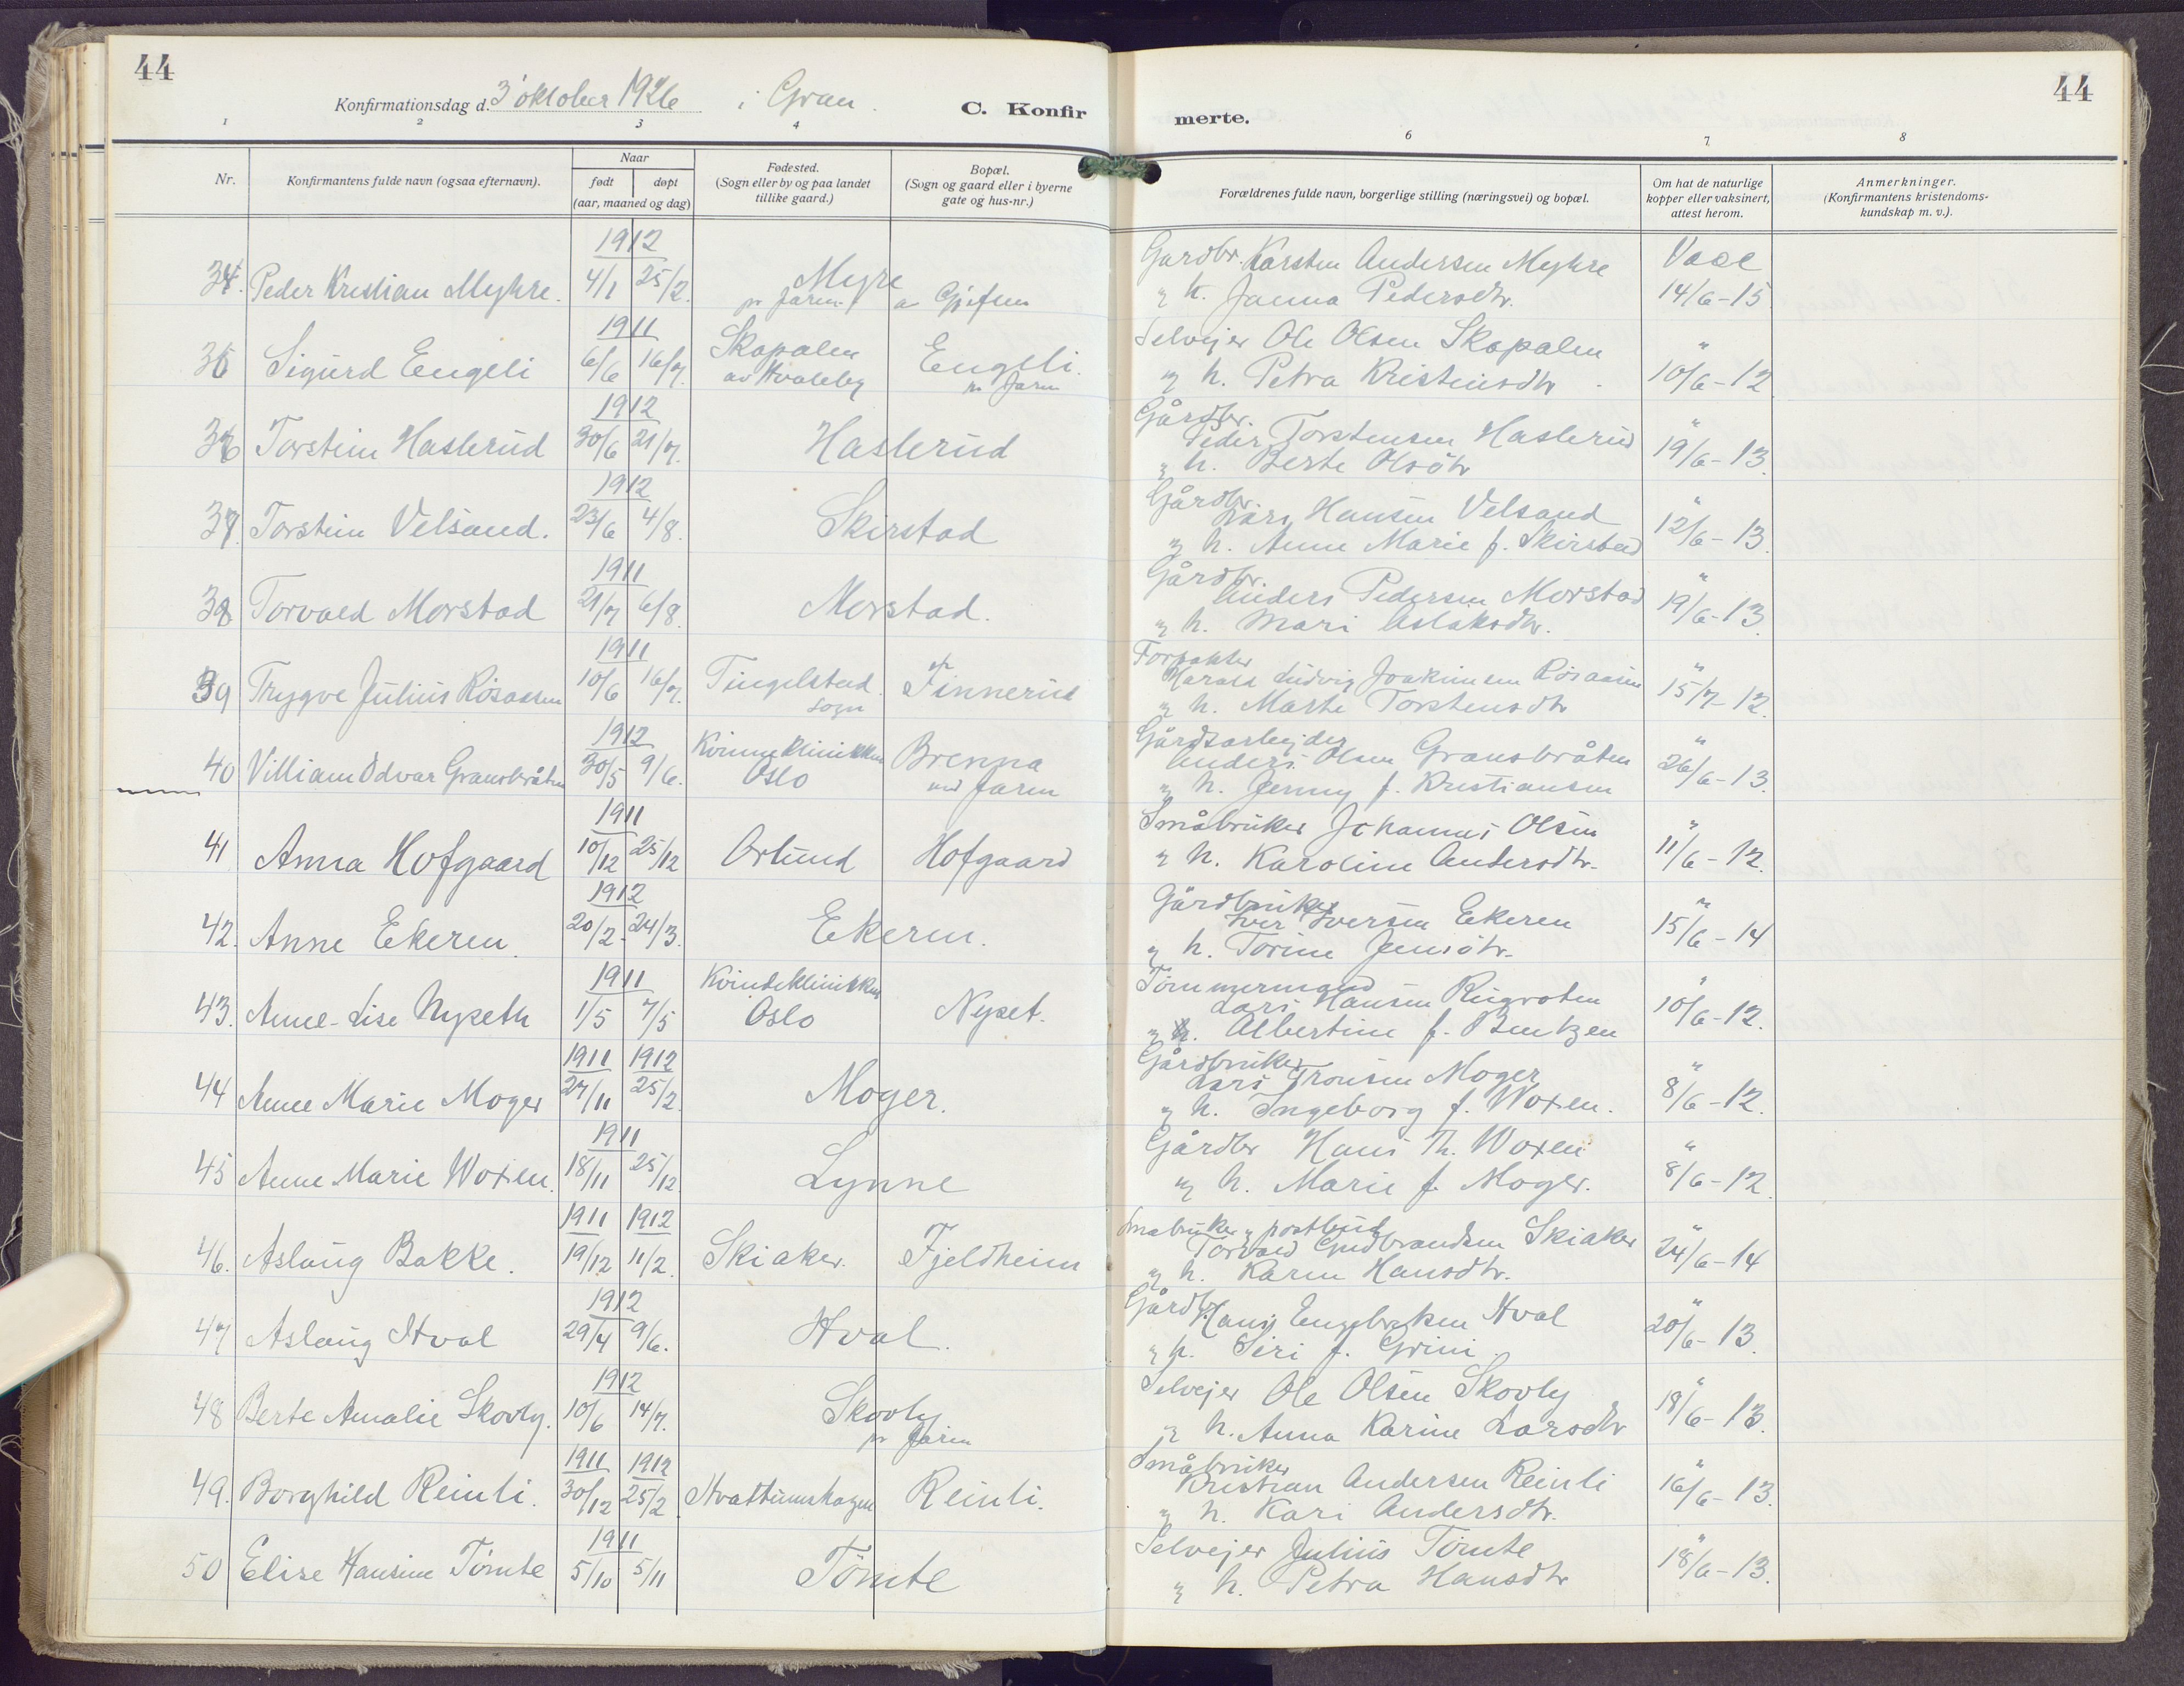 44
44
Konfirmationsdag d. 3' oktober 1926 i Gran.
C. Konfir
merte.
1 2 3 4 6 7 8
Nr.
Konfirmantens fulde navn (ogsaa efternavn).
Naar
født døpt
(aar, maaned og dag)
Fødested.
(Sogn eller by og paa landet
tillike gaard.)
Bopæl.
(Sogn og gaard eller i byerne
gate og hus-nr.)
Forældrenes fulde navn, borgerlige stilling (næringsvei) og bopæl.
Om hat de naturlige
kopper eller vaksinert,
attest herom.
Anmerkninger.
(Konfirmantens kristendoms-
kundskap m. v.).
1912 Gardbr. Karsten Andersen Myhre Vacc
34. Peder Kristian Myhre. 4/1 25/2. Myre
pr Jaren. av Gjefsen
" h. Janna Pedersdtr. 14/6-15
1911 Selvejer Ole Olsen Skapalen "
35 Sigurd Engeli 6/6 16/7. Skapalen Engeli.
av Hvaleby pr Jaren
" h. Petra Kristinsdtr. 10/6-12
1912 Gårdbr. "
36 Torstein Haslerud 30/6 21/7. Haslerud Peder Torstensen Haslerud 19/6-13.
" h. Berte Olsdtr
1912 Gårdbr. "
37. Torstein Velsand. 23/6 4/8. Skirstad Lars Hansen Velsand 12/6-13.
" h. Anne Marie f. Skirstad
1911 Gårdbr. "
38 Torvald Morstad 21/7 6/8. Morstad. Anders Pedersen Morstad 19/6-13
" h. Mari Aslaksdtr.
1911 Forpakter "
39 Trygve Julius Rosaasen 10/6 16/7. Tingelstad sogn Finnerud Harald Ludvig Joakimsen Rosaasen 15/7-12.
" h. Marte Torstensdtr
1912 Gårdsarbejder "
40 Villiam Odvar Gransbråten 30/5 9/6. Kvinneklinikken Oslo Brenna ved Jaren Anders Olsen Gransbråten 26/6-13.
" h. Jenny f. Kristiansen
1911 Småbruker Johannes Olsen "
41 Anna Hofgaard 10/12 25/12 Orlund Hofgaard " h. Karoline Andersdtr. 11/6-12.
1912 Gårdbruker "
42. Anne Ekeren. 20/2- 24/3. Ekeren. Iver Iversen Ekeren 15/6-14
" h. Torine Jensdtr.
1911 Tömmermand "
43. Anne-Lise Nyseth 1/5 7/5 Kvindeklinikken Oslo Nyset. Lars Hansen Rugroten 10/6-12.
" h. Albertine f. Bentzen
1911 1912 Gårdbruker "
44 Anne Marie Moger 27/11 25/2. Moger. Lars Tronsen Moger 8/6-12.
" h. Ingeborg f. Woxen.
1911 Gårdbr Hans Th. Woxen "
45 Anne Marie Woxen. 18/11 25/12. Lynne " h. Marie f. Moger. 8/6-12.
1911 1912 Småbruker, postbud "
46. Aslaug Bakke. 19/12 11/2. Skiaker. Fjeldheim Torvald Gudbrandsen Skiaker 24/6-14
" h. Karen Hansdtr.
1912 Gårdbr "
47 Aslaug Hval 29/4 9/6. Hval. Hans Engebretsen Hval 20/6-13.
" h. Siri f. Grini.
1912 Selvejer Ole Olsen Skovly "
48 Berte Amalie Skovly. 10/6 14/7. Skovly pr Jaren " h. Anna Karine Larsdtr 18/6-13.
1911 1912 Småbruker "
49. Borghild Reinli. 30/12 25/2. Hvattumshagen Reinli. Kristian Andersen Reinli 16/6-13.
" h. Kari Andersdtr.
1911 Selvejer Julius Tömte "
50 Elise Hansine Tömte 5/10 5/11 Tömte " h. Petra Hansdtr 18/6-13.